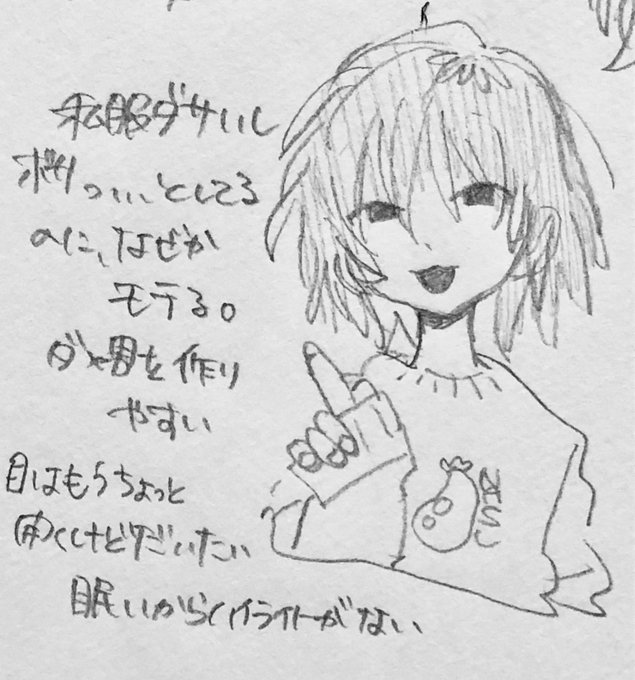 私服ダサいし
ボサっ…としてる
のに、なぜか
モテる。
ダメ男を作り
やすい
目はもうちょっと
開くけどだいたい
眠いからハイライトがない